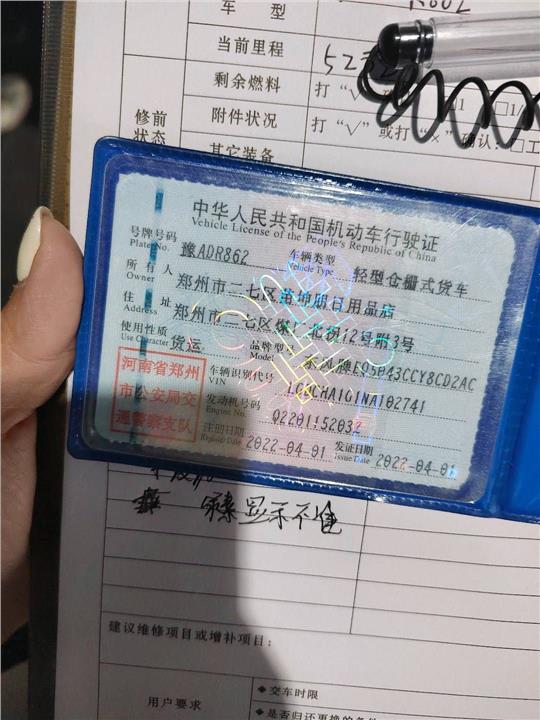 车 型
当前里程
剩余燃料
打“√”
修前
状态
附件状况
打“√”或打“×”确认：□工
其它装备
中华人民共和国机动车行驶证
Vehicle License of the People's Republic of China
号牌号码 豫ADR862 车辆类型 轻型仓栅式货车
Plate No. Vehicle Type
所有人 郑州市二七区 坤朋日用品店
Owner
住址 郑州市二七区煤厂北拐12号附3号
Address
使用性质 货运 品牌型号 EQ5043CCY8CD2AC
Use Character Model
河南省郑州
市公安局交
通警察支队
车辆识别代号
VIN
CHA1G1NA102741
发动机号码 Q2201152032
Engine No.
注册日期 2022-04-01 发证日期 2022-04-01
Register Date Issue Date
显示不准
建议维修项目或增补项目：
用户要求
◆交车时限
◆是否归还更换的